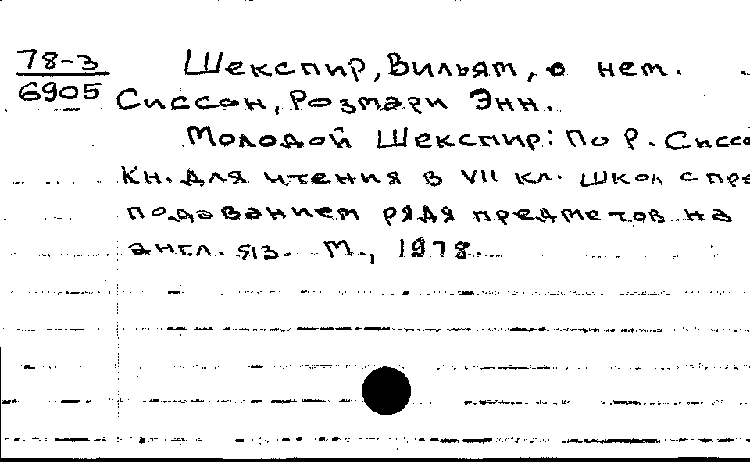 78-3
6905
Шекспир, Вильям, о нем.
Сиссон, Розмари Энн.
Молодой Шекспир: По Р. Сиссо
Кн. для чтения в VII кл. школ с пре
подаванием ряда предметов на
англ. яз. М., 1978.